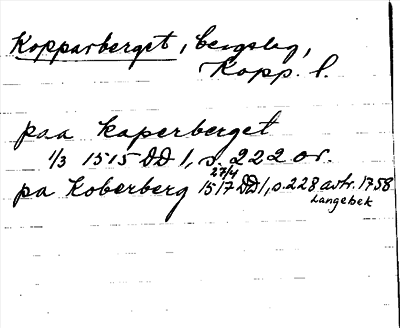 Kopparberget, bergslag,
Kopp. l.
paa kaperberget
1/3 1515 DD 1, s. 222 or.
pa Koberberg 27/4 1517 DD 1, s. 228 avtr. 1758
Langebek